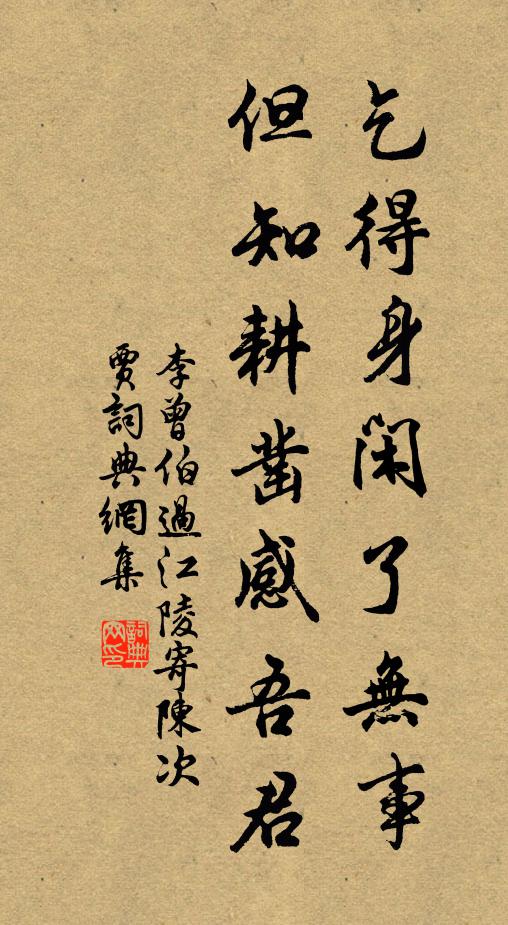 乞得身閑了無事
但知耕鑿感吾君
李曾伯過江陵寄陳次
賈詞典網集
詞典網印